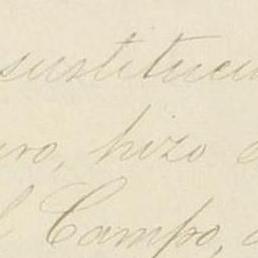 sustituci
ro, hizo
l Campo,